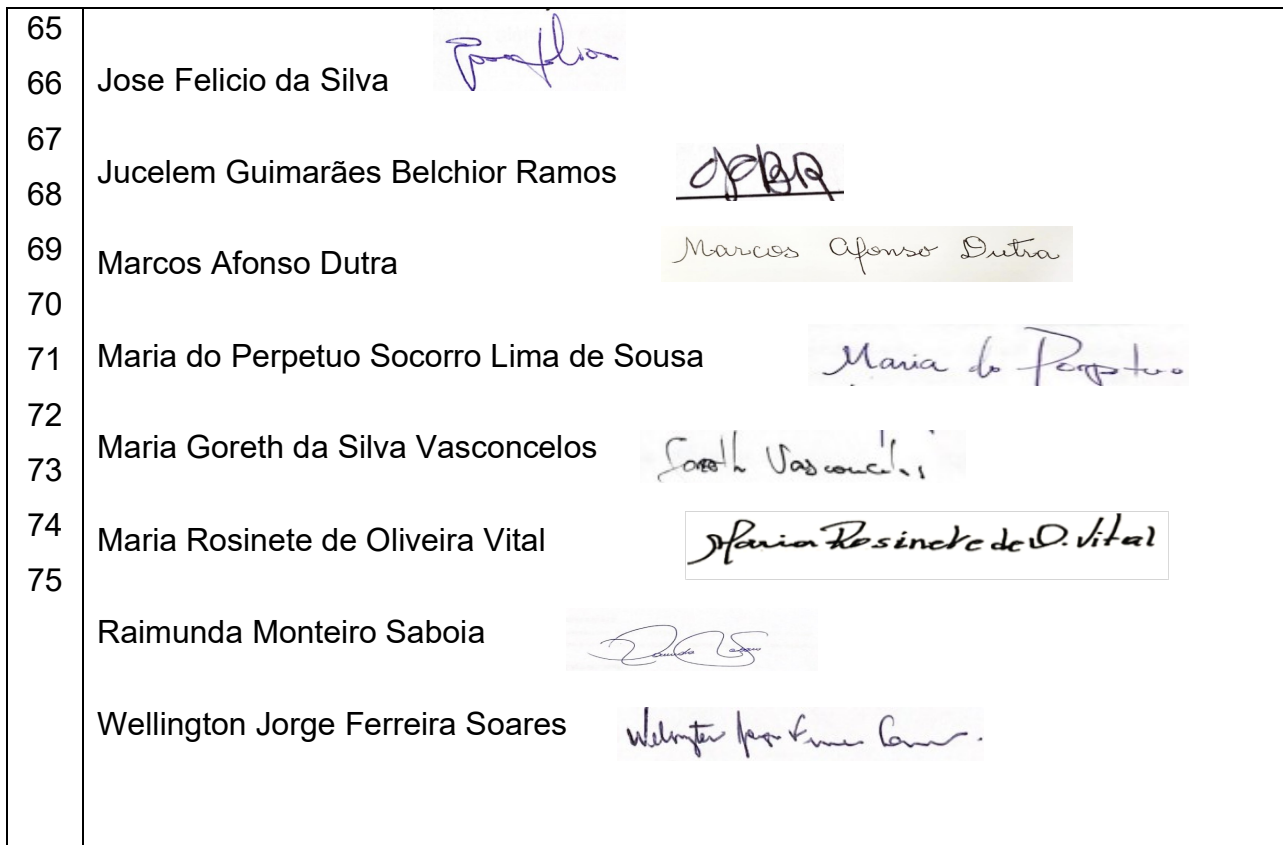 65
66 Jose Felicio da Silva
67
Jucelem Guimarães Belchior Ramos
68
69 Marcos Afonso Dutra Marcos Afonso Dutra
70
71 Maria do Perpetuo Socorro Lima de Sousa Maria do Perpetuo
72
Maria Goreth da Silva Vasconcelos Goreth Vasconcelos
73
74 Maria Rosinete de Oliveira Vital Maria Rosinete de O. Vital
75
Raimunda Monteiro Saboia
Wellington Jorge Ferreira Soares